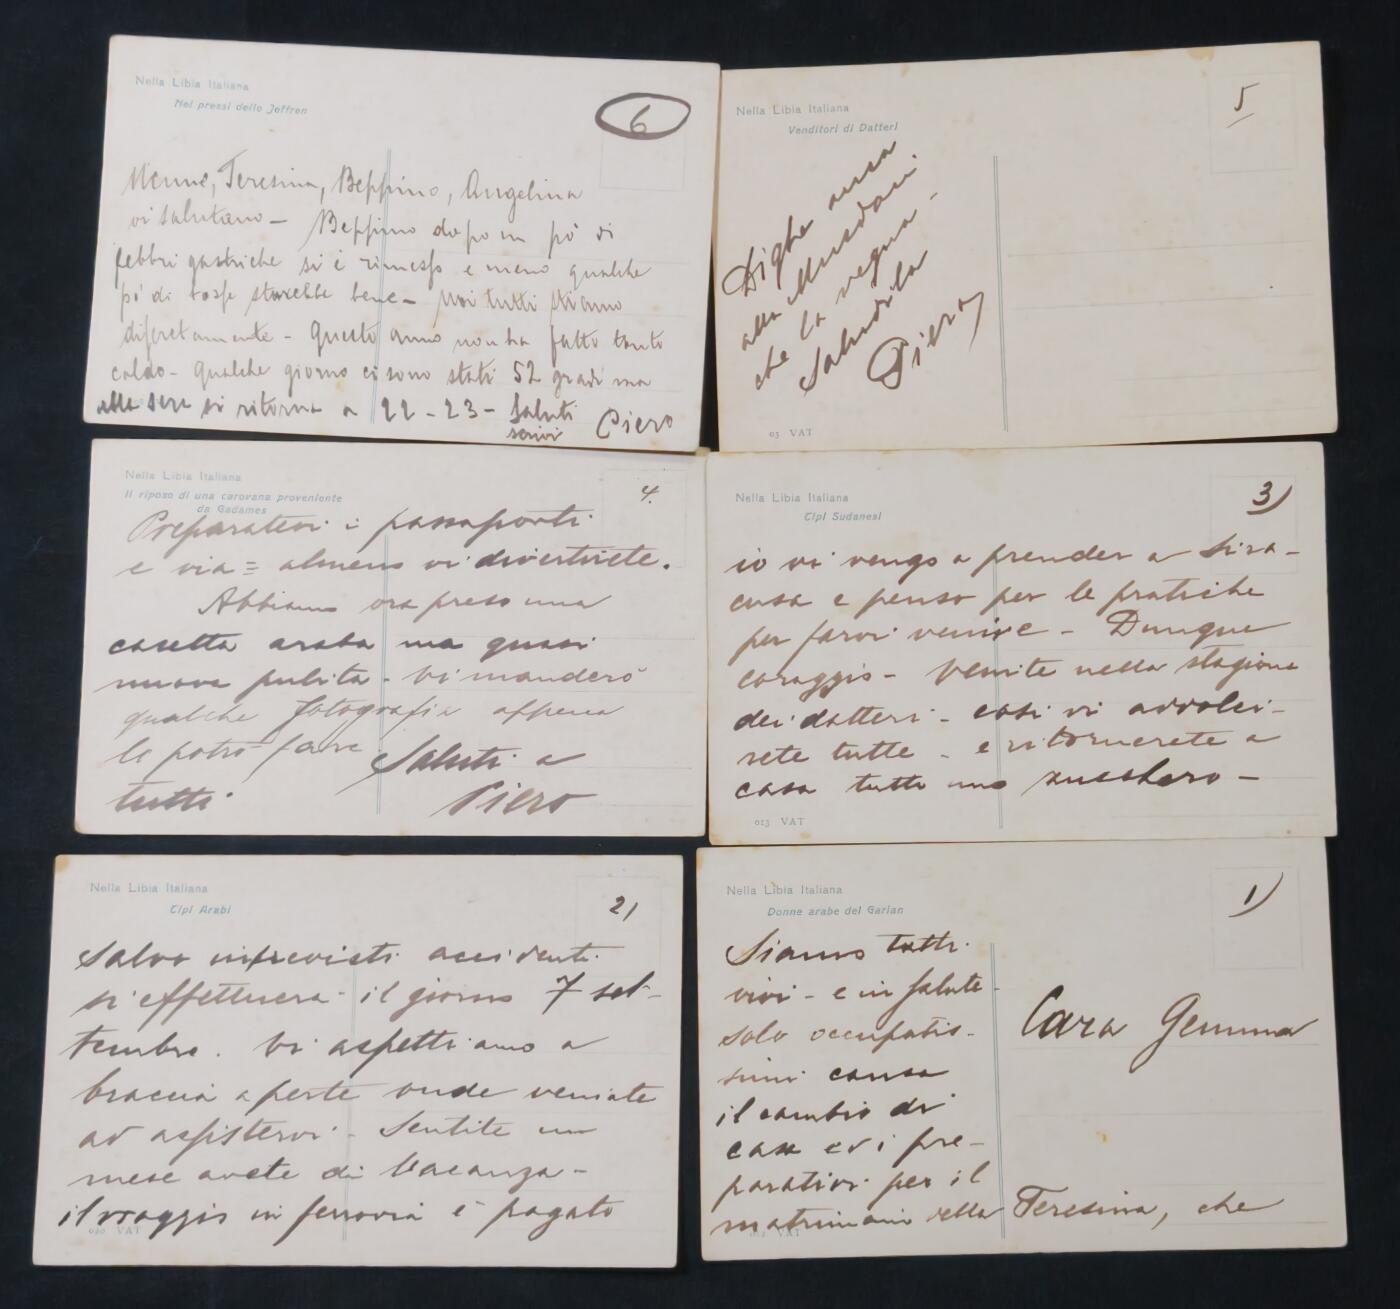 Nella Libia Italiana
Nei pressi dello Jeffren
6
Memmè, Teresina, Beppino, Angelina
vi salutano - Beppino dopo un pò di
febbri gastriche si è rimesso e meno qualche
pò di tosse starebbe bene - Noi tutti stiamo
discretamente - Questo anno non ha fatto tanto
caldo - Qualche giorno ci sono stati 52 gradi ma
alla sera si ritorna a 22 - 23 - Saluti
scrivi Piero
Nella Libia Italiana
Venditori di Datteri
5
Dighe
alla
che la vegna -
Saludila
Piero
03 VAT
Nella Libia Italiana
Il riposo di una carovana proveniente
da Gadames
4.
Preparatevi i passaporti
e via = almeno vi divertirete.
Abbiamo ora preso una
casetta araba ma quasi
nuova pulita - Vi manderò
qualche fotografia appena
le potrò fare Saluti a
tutti Piero
Nella Libia Italiana
Tipi Sudanesi
3)
io vi vengo a prender a Sira-
cusa e penso per le pratiche
per farvi venire - Dunque
coraggio - Venite nella stagione
dei datteri - così vi addolci-
rete tutte - e ritornerete a
casa tutte uno zucchero -
013 VAT
Nella Libia Italiana
Tipi Arabi
2)
salvo imprevisti accidenti
si effettuerà il giorno 7 set-
tembre. Vi aspettiamo a
braccia aperte onde veniate
ad assistervi - Sentite un
mese avete di vacanza -
il viaggio in ferrovia è pagato
030 VAT
Nella Libia Italiana
Donne arabe del Garian
1)
Siamo tutti
vivi - e in salute -
solo occupatis-
simi causa
il cambio di
casa ed i pre-
parativi per il
matrimonio della Teresina, che
Cara Gemma
012 VAT